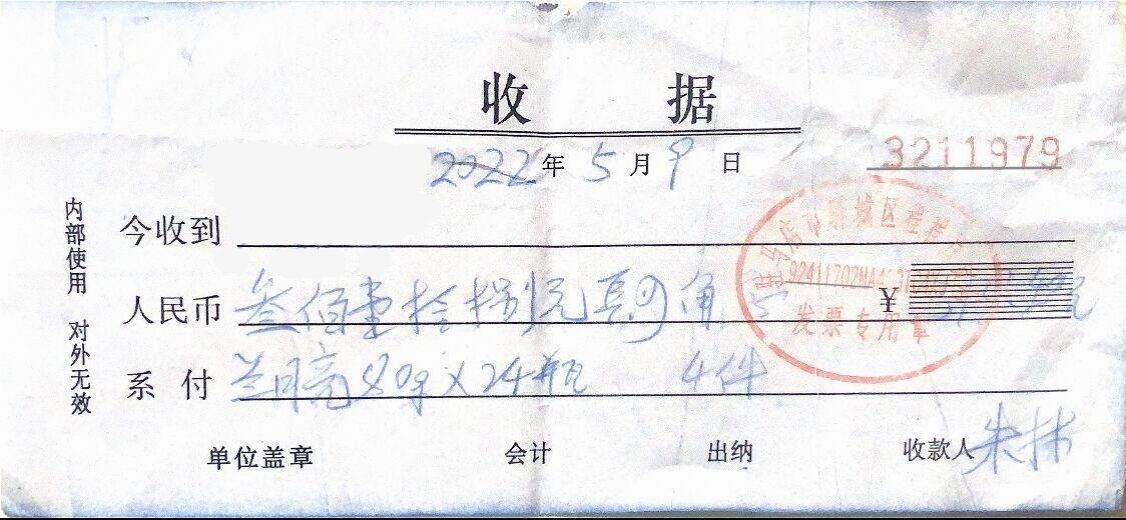 收 据
2022年5月9日
3211979
今收到
人民币 叁佰壹拾捌元 角
系付 兰月亮80g×24瓶 4件
驻马店市驿城区
发票专用章
¥
内部使用 对外无效
单位盖章 会计 出纳 收款人 朱